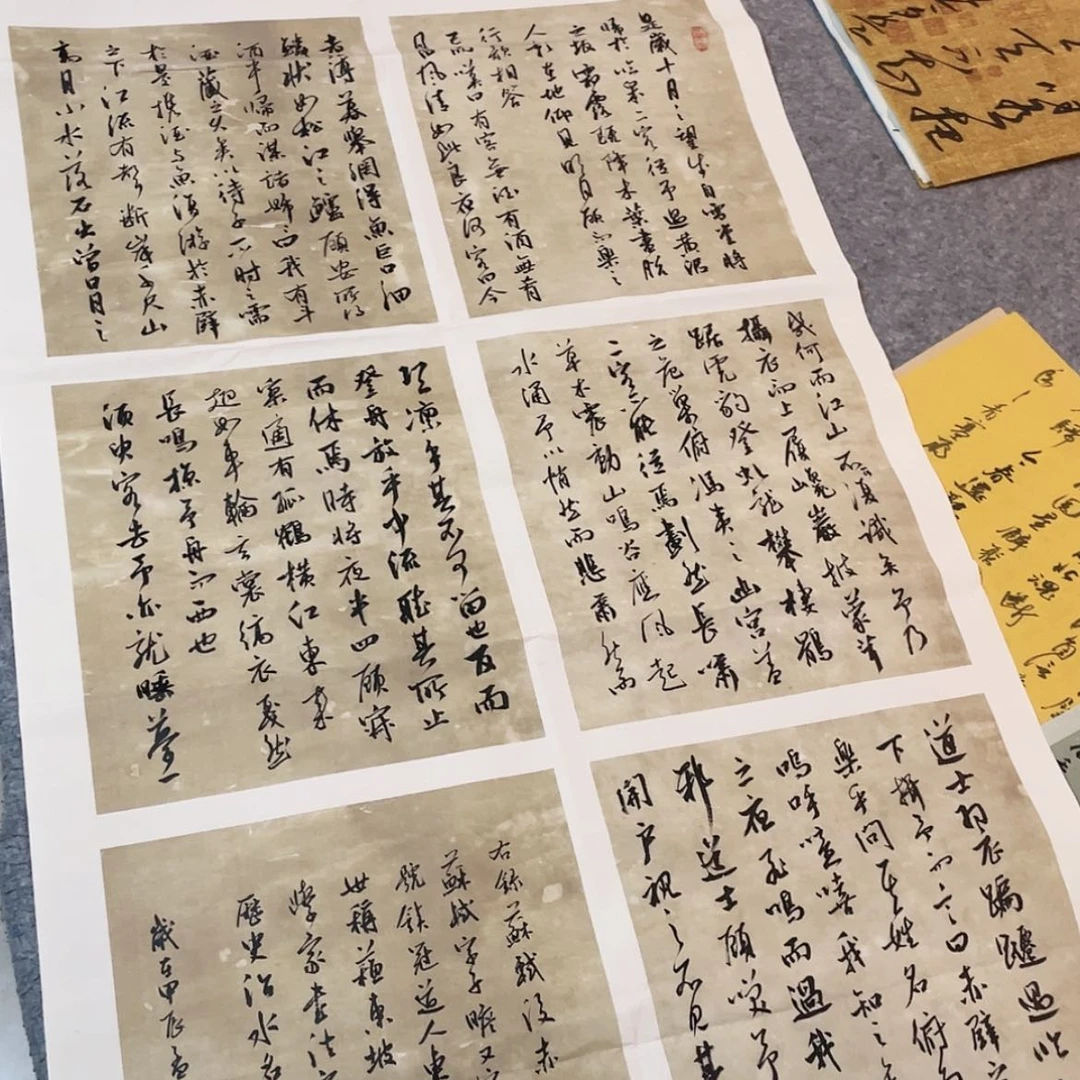 是歲十月之望步自雪堂將
歸於臨皋二客從予過黃泥
之坂霜露既降木葉盡脫
人影在地仰見明月顧而樂之
行歌相答
已而嘆曰有客無酒有酒無肴
月風清如此良夜何客曰今
者薄暮舉網得魚巨口細
鱗狀如松江之鱸顧安所得
酒乎歸而謀諸婦曰我有斗
酒藏之久矣以待子不時之需
於是攜酒與魚復游於赤壁
之下江流有聲斷岸千尺山
高月小水落石出曾日月之
幾何而江山不可復識矣予乃
攝衣而上履巉巖披蒙茸
踞虎豹登虬龍攀棲鶻
之危巢俯馮夷之幽宮蓋
二客不能從焉劃然長嘯
草木震動山鳴谷應風起
水涌予亦悄然而悲肅然而
恐凜乎其不可留也反而
登舟放乎中流聽其所止
而休焉時將夜半四顧寂
寥適有孤鶴橫江東來
翅如車輪玄裳縞衣戛然
長鳴掠予舟而西也
須臾客去予亦就睡夢一
道士羽衣蹁躚過臨
下揖予而言曰赤壁之
樂乎問其姓名俯而
嗚呼噫嘻我知之矣
之夜飛鳴而過我
邪道士顧笑予
開戶視之不見其
右錄蘇軾後赤
蘇軾字子瞻又
號鐵冠道人東
世稱蘇東坡
學家書法
歷史治水名
歲在甲辰孟